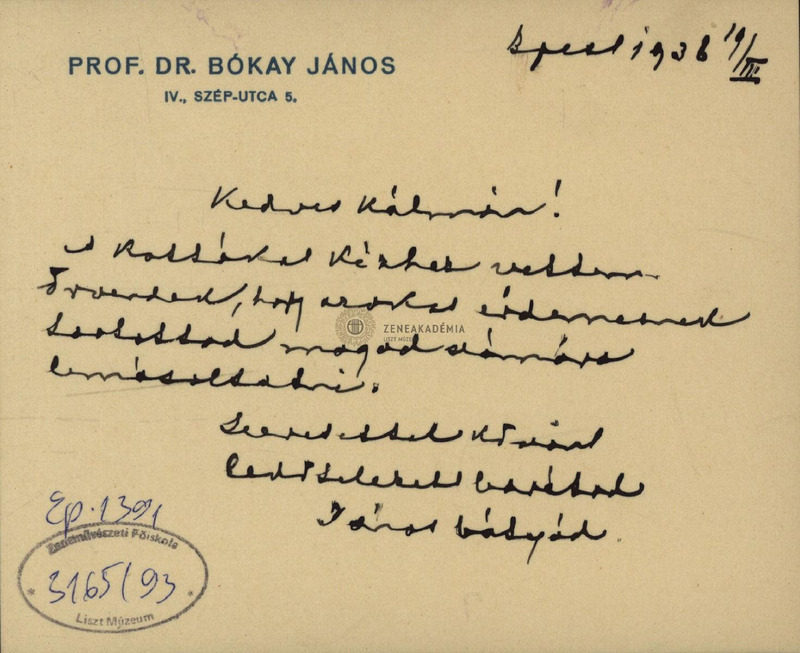 Bpest 1936 19/III.
PROF. DR. BÓKAY JÁNOS
IV., SZÉP-UTCA 5.
Kedves Kálmán!
A kottákat kézhez vettem.
Örvendek, hogy azokat érdemesnek
tartottad magad számára
lemásoltatni.
Szeretettel
barátod
János bátyád.
ZENEAKADÉMIA
LISZT MÚZEUM
Ep. 1391
Zeneművészeti Főiskola
3165/93
Liszt Múzeum